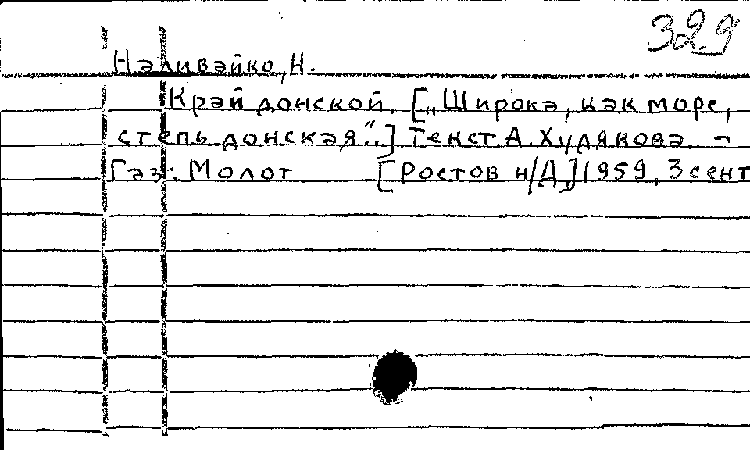 329
Наливайко, Н.
Край донской. [„Широка, как море,
степь донская“.] Текст А. Худякова. –
Газ. Молот [Ростов н/Д] 1959, 3 сент